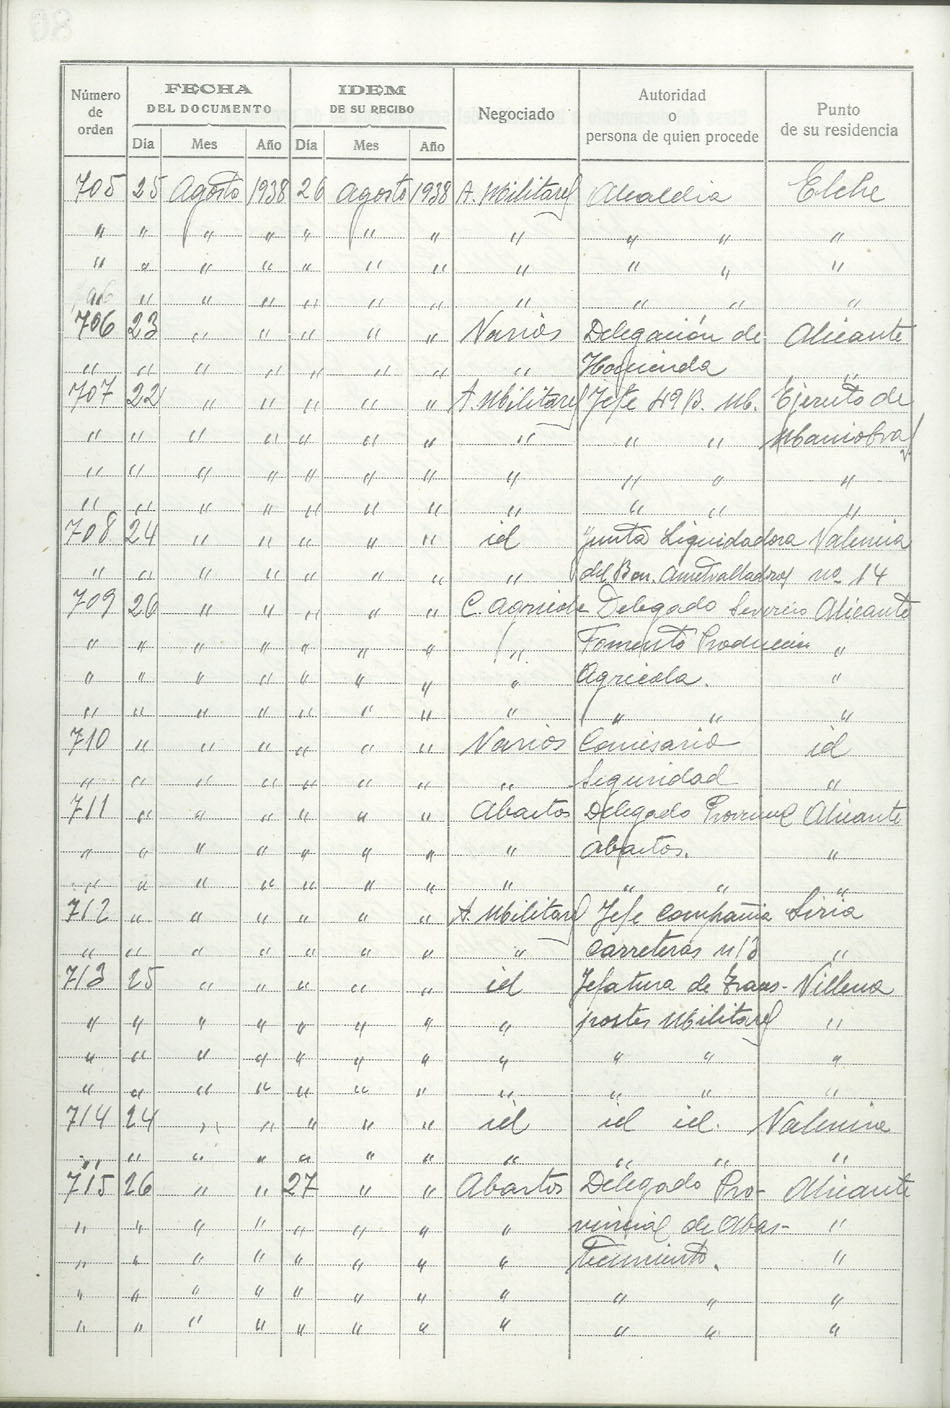 Número de orden | FECHA DEL DOCUMENTO | IDEM DE SU RECIBO | Negociado | Autoridad o persona de quien procede | Punto de su residencia
Día | Mes | Año | Día | Mes | Año
705 25 Agosto 1938 26 Agosto 1938 A. Militares Alcaldia Elche
" " " " " " " " " " "
" " " " " " " " " " "
" " " " " " " " " "
706 23 " " " " " Varios Delegación de Alicante
" " " " " " " " Hacienda "
707 22 " " " " " A. Militares Jefe 49 B. Mb. Ejercito de
" " " " " " " " " " Maniobras
" " " " " " " " " " "
" " " " " " " " " " "
708 24 " " " " " id Junta Liquidadora Valencia
" " " " " " " " del Bon. Ametrallador nº 14
709 26 " " " " " C. Agricola Delegado Servicio Alicante
" " " " " " " " Fomento Produccion "
" " " " " " " " Agricola. "
" " " " " " " " " " "
710 " " " " " " Varios Comisario id
" " " " " " " " Seguridad "
711 " " " " " " Abastos Delegado Provincial Alicante
" " " " " " " " Abastos. "
" " " " " " " " " " "
712 " " " " " " A. Militares Jefe Compañia Liria
" " " " " " " " Carreteras n/3 "
713 25 " " " " " id Jefatura de Trans- Villena
" " " " " " " " portes Militares "
" " " " " " " " " " "
" " " " " " " " " " "
714 24 " " " " " id id id. Valencia
" " " " " " " " " " "
715 26 " " 27 " " Abastos Delegado Pro- Alicante
" " " " " " " " vincial de Abas- "
" " " " " " " " tecimiento. "
" " " " " " " " " " "
" " " " " " " " " " "